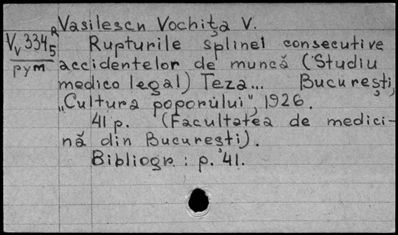 Vasilescu Vochița V.
V, 334 R/5
Rupturile splinei consecutive
рум accidentelor de muncă (Studiu
medico legal) Teza... București,
„Cultura poporului", 1926.
41 p. (Facultatea de medici-
nă din București).
Bibliogr.: p. 41.